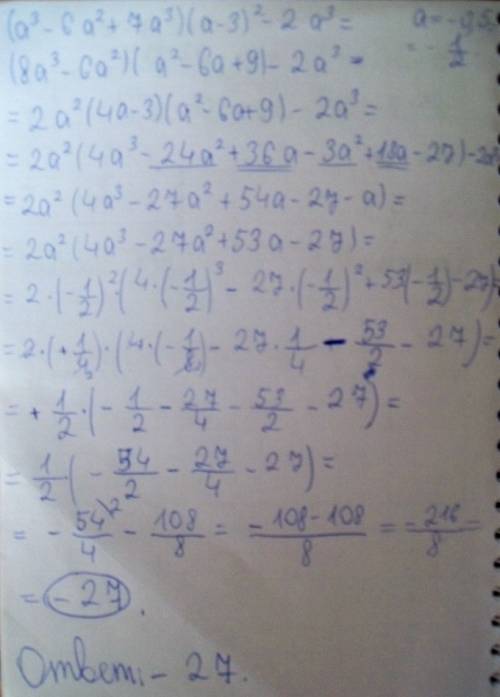 (a³ - 6a² + 7a³)(a-3)² - 2a³ = a = -0,5
(8a³ - 6a²)(a² - 6a + 9) - 2a³ = = -1/2
= 2a²(4a-3)(a² - 6a + 9) - 2a³ =
= 2a²(4a³ - 24a² + 36a - 3a² + 18a - 27) - 2a³
= 2a²(4a³ - 27a² + 54a - 27 - a) =
= 2a²(4a³ - 27a² + 53a - 27) =
= 2·(-1/2)²(4·(-1/2)³ - 27·(-1/2)² + 53(-1/2) - 27)
= 2·(+1/4)·(4·(-1/8) - 27·1/4 - 53/2 - 27) =
= +1/2·(-1/2 - 27/4 - 53/2 - 27) =
= 1/2(-54/2 - 27/4 - 27) =
= -54\2/4 - 108/8 = -108-108/8 = -216/8 =
= -27.
Ответ: -27.